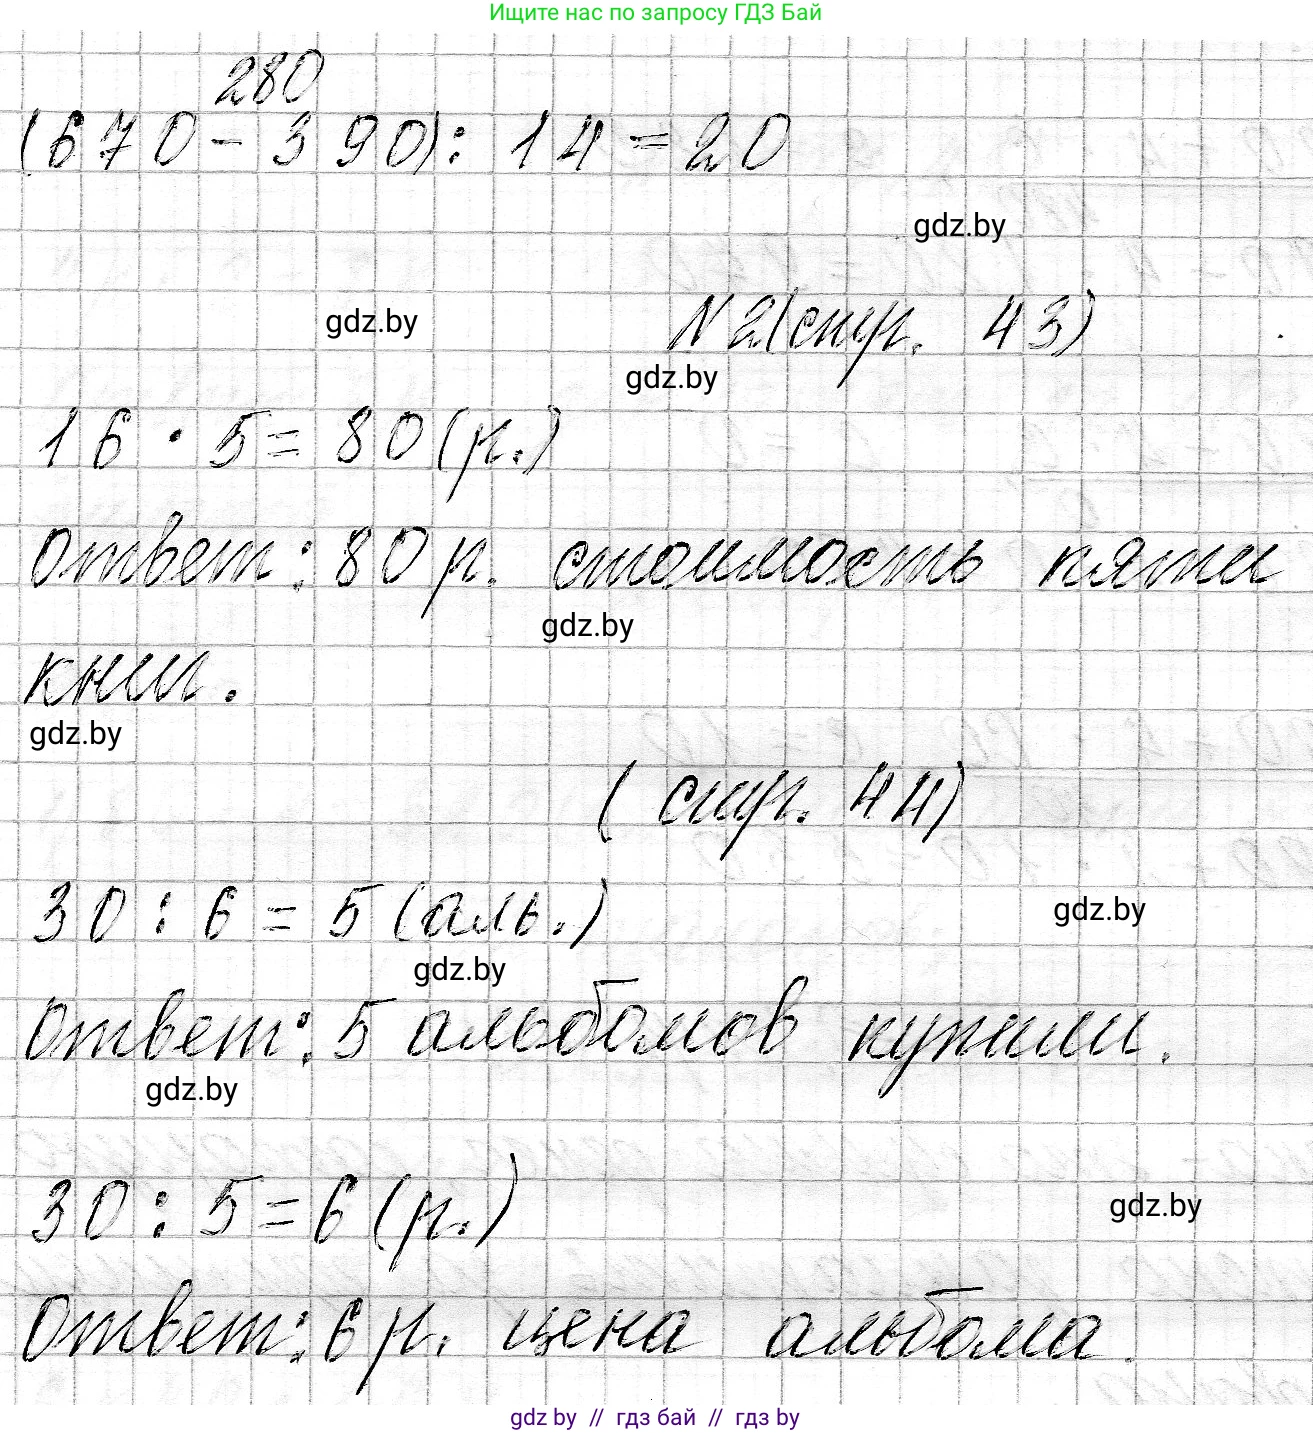 Ищите нас по запросу ГДЗ Бай
280
(670 - 390) : 14 = 20
gdz.by
gdz.by
N 2 (стр. 43)
gdz.by
16 · 5 = 80 (р.)
Ответ: 80 р. стоимость пяти
gdz.by
книг.
gdz.by
(стр. 44)
30 : 6 = 5 (аль.)
gdz.by
gdz.by
Ответ: 5 альбомов купили.
gdz.by
30 : 5 = 6 (р.)
gdz.by
Ответ: 6 р. цена альбома.
gdz by // гдз бай // гдз by